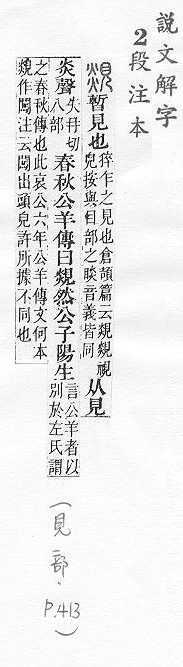 說文解字
2段注本
覢暫見也
猝乍之見也倉頡篇云覢覢視
皃按與目部之睒音義皆同
从見
炎聲
失冉切
八部
春秋公羊傳曰覢然公子陽生
言公羊者以
別於左氏謂
之春秋傳也此哀公六年公羊傳文何本
覢作闖注云闖出頭皃許所據不同也
(見部.P.413)